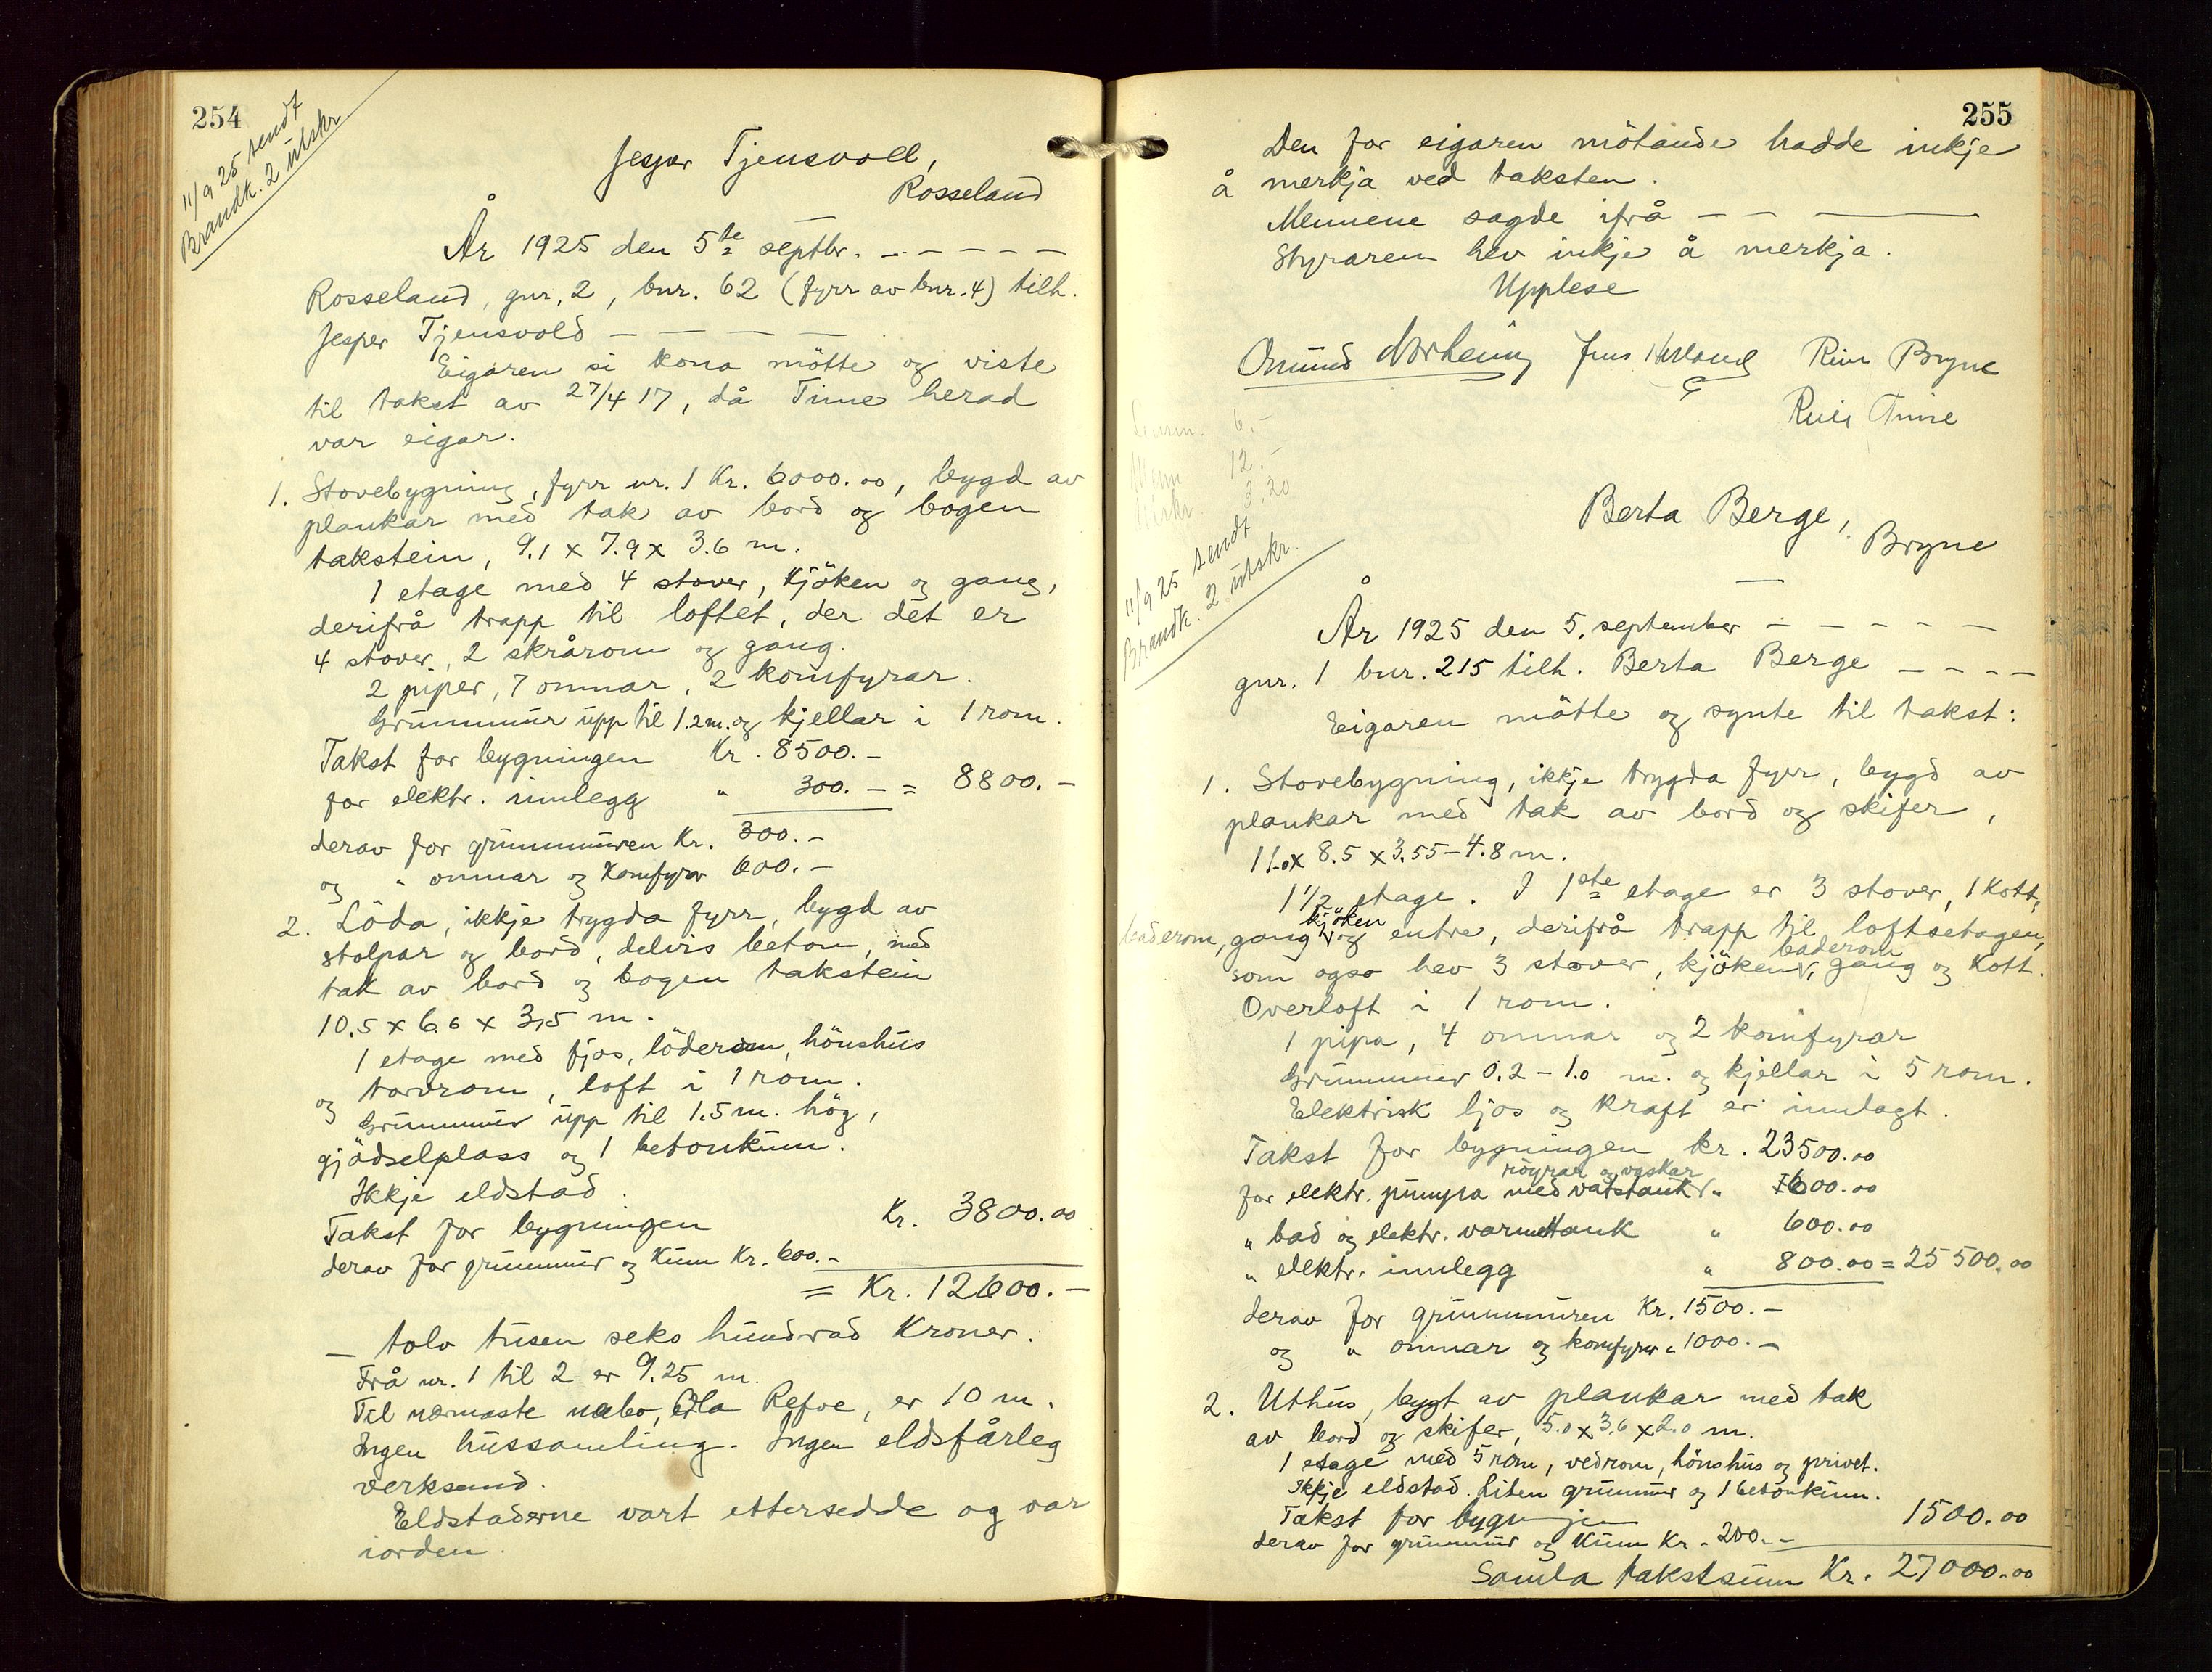 254
11/9 25 sendt
Brandk. 2 utskr.
Jesper Tjensvoll,
Rosseland
År 1925 den 5te septbr. - - - - -
Rosseland, gnr. 2, bnr. 62 (fyrr av bnr. 4) tilh.
Jesper Tjensvold - - - -
Eigaren si kona mötte og viste
til takst av 27/4 17, då Time herad
var eigar.
1. Stovebygning, fyrr nr. 1 Kr. 6000.00, bygd av
plankar med tak av bord og bogen
takstein, 9.1 x 7.9 x 3.6 m.
1 etage med 4 stover, kjöken og gang,
derifrå trapp til loftet, der det er
4 stover, 2 skrårom og gang.
2 piper, 7 omnar, 2 komfyrar.
Grunnmur upp til 1.2 m. og kjellar i 1 rom.
Takst for bygningen Kr. 8500.-
for elektr. innlegg " 300.- = 8800.-
derav for grunnmuren Kr. 300.-
og " omnar og komfyrar 600.-
2. Löda, ikkje trygda fyrr, bygd av
stolpar og bord, delvis beton, med
tak av bord og bogen takstein
10.5 x 6.6 x 3.5 m.
1 etage med fjos, löderom, hönshus
og torvrom, loft i 1 rom.
Grunnmur upp til 1.5 m. hög,
gjödselplass og 1 betonkum.
Ikkje eldstad.
Takst for bygningen Kr. 3800.00
derav for grunnmur og kum Kr. 600.-
= Kr. 12600.-
- tolv tusen seks hundrad Kroner.
Frå nr. 1 til 2 er 9.25 m.
Til nærmaste nabo, Ola Refve, er 10 m.
Ingen hussamling. Ingen eldsfårleg
verksemd.
Eldstaderne vart ettersedde og var
iorden.
255
Den for eigaren mötande hadde inkje
å merkja ved taksten.
Mennene sagde ifrå - - -
Styraren hev inkje å merkja.
Upplese
Omund Norheim Jens Herland Rein Bryne
Rein Time
6.-
12.-
3.20
11/9 25 sendt
Brandk. 2 utskr.
Berta Berge,
Bryne
År 1925 den 5. september - - - - -
gnr. 1 bnr. 215 tilh. Berta Berge - - - -
Eigaren mötte og synte til takst:
1. Stovebygning, ikkje trygda fyrr, bygd av
plankar med tak av bord og skifer,
11.0 x 8.5 x 3.55 - 4.8 m.
1 1/2 etage. I 1ste etage er 3 stover, 1 kott,
kjöken
baderom, gang og entre, derifrå trapp til loftsetagen,
baderom
som ogso hev 3 stover, kjöken, gang og kott.
Overloft i 1 rom.
1 pipa, 4 omnar og 2 komfyrar
Grunnmur 0.2 - 1.0 m. og kjellar i 5 rom.
Elektrisk ljos og kraft er innlagt.
Takst for bygningen kr. 23500.00
röyrar og vaskar
for elektr. pumpa med vatstank " 600.00
" bad og elektr. varmetank " 600.00
" elektr. innlegg " 800.00 = 25500.00
derav for grunnmuren Kr. 1500.-
og " omnar og komfyrar " 1000.-
2. Uthus, bygt av plankar med tak
av bord og skifer, 5.0 x 3.6 x 2.0 m.
1 etage med 5 rom, vedrom, hönshus og privet.
Ikkje eldstad. Liten grunnmur og 1 betonkum.
Takst for bygningen 1500.00
derav for grunnmur og kum Kr. 200.-
Samla takstsum Kr. 27000.00